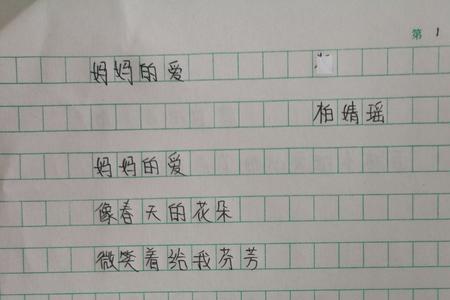 第 1
妈妈的爱
柏婧瑶
妈妈的爱
像春天的花朵
微笑着给我芬芳